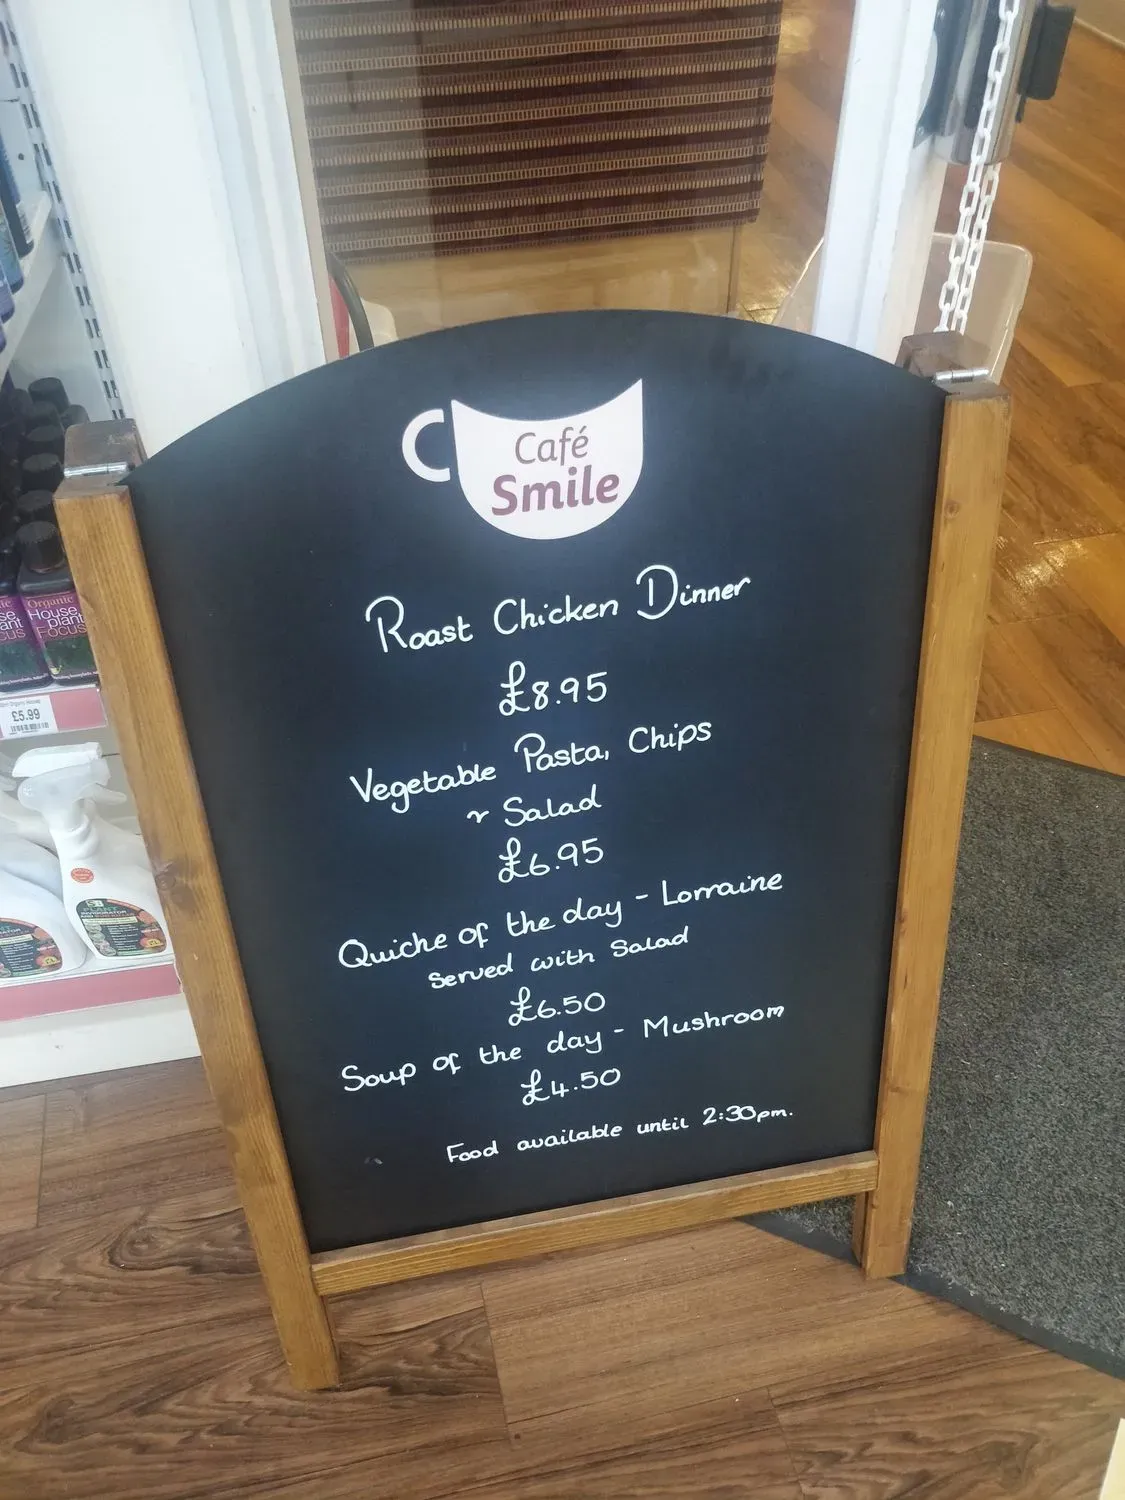 Café
Smile
Roast Chicken Dinner
£8.95
Vegetable Pasta, Chips
r Salad
£6.95
Quiche of the day - Lorraine
Served with Salad
£6.50
Soup of the day - Mushroom
£4.50
Food available until 2:30pm.
Organic
House
plant
FOCUS
£5.99
PLANT
INVIGORATOR